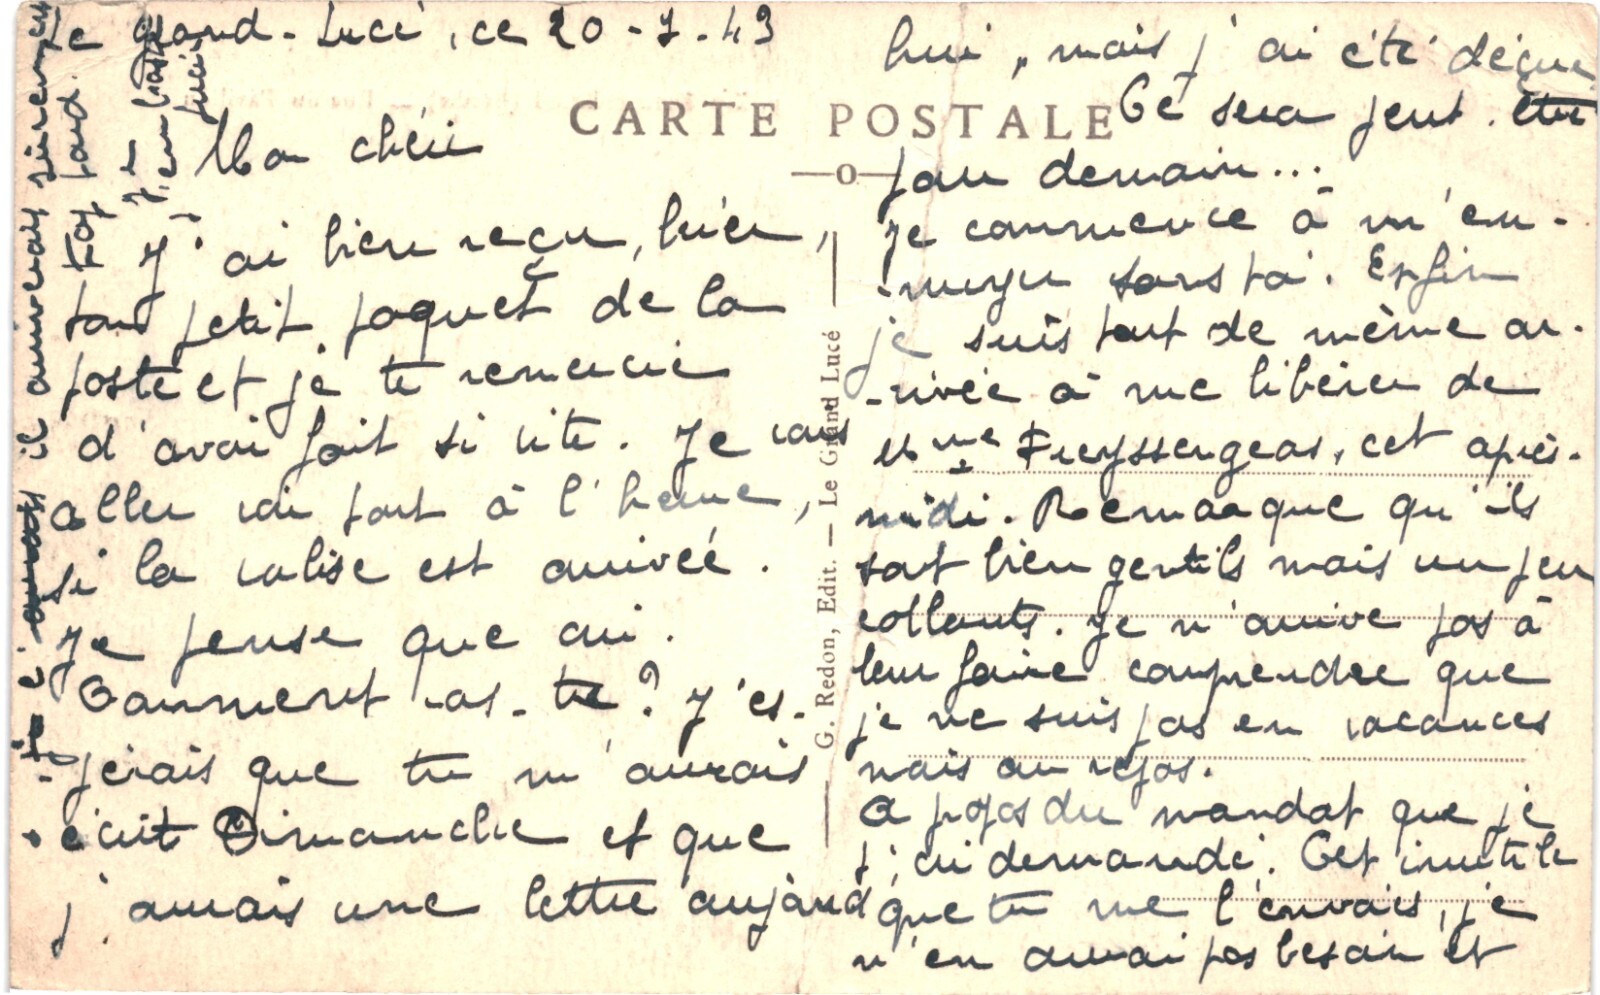 Le grand-Lucé, ce 20-7-43
CARTE POSTALE
Mon chéri
J'ai bien reçu, hier,
ton petit paquet de la
poste et je te remercie
d'avoir fait si vite. Je vais
aller voir tout à l'heure,
si la valise est arrivée.
Je pense que oui.
Comment vas-tu? J'es-
-pérais que tu m'aurais
écrit Dimanche et que
j'aurais une lettre aujourd
G. Redon, Edit. — Le Grand Lucé
hui, mais j'ai été déçue
Ce sera peut.être
pour demain...
Je commence à m'en-
-nuyer sans toi. Enfin
je suis tout de même ar-
-rivée à me libérer de
Mme Freyssengeas, cet après-
midi. Remarque qu'ils
sont bien gentils mais un peu
collants. Je n'arrive pas à
leur faire comprendre que
je ne suis pas en vacances
mais au repos.
A propos du mandat que je
t'ai demandé. Cet inutile
que tu me l'envois, je
n'en aurai pas besoin et
il arriverait sirement
trop tard.
Je
t'embrasse